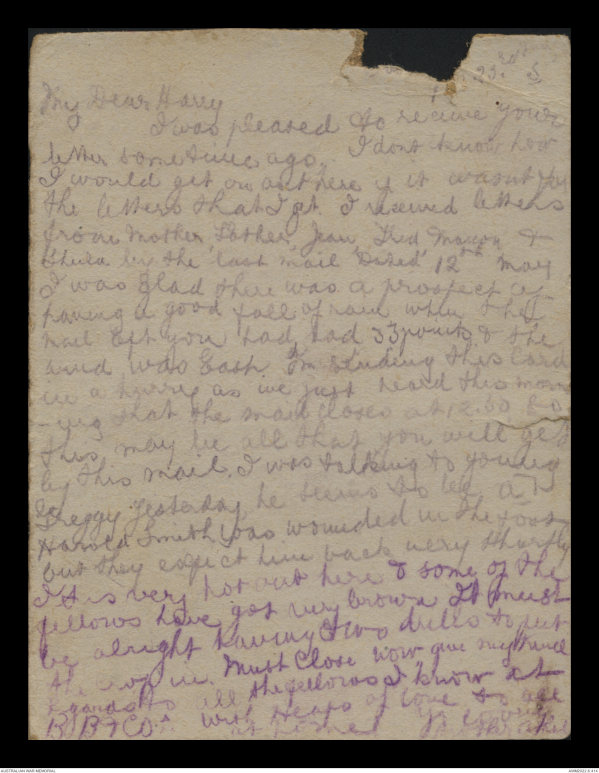 23rd 5
My Dear Harry
I was pleased to receive your
letter some time ago. I dont know how
I would get on out here if it wasnt for
the letters that I get I received letters
from Mother Father, Jean, &
Sheila by the last mail Dated 12th May
I was glad there was a prospect of
having a good fall of rain when the
mail left you had had 33 points & the
wind was East. I'm sending this Card
in a hurry as we just heard this morn
-ing that the mail closes at 12.30 So
this may be all that you will get
by this mail. I was talking to young
Greggy Yesterday he seems to be
Harold Smith was wounded in the foot
but they expect him back very shortly
It is very hot out here & some of the
fellows have got very brown It must
be alright having two drills to put
the crop in. Must Close now give my kind
regards to all the fellows I know at
B B & Co. with Heaps of love to all
at home
AUSTRALIAN WAR MEMORIAL
AWM2022.6.414